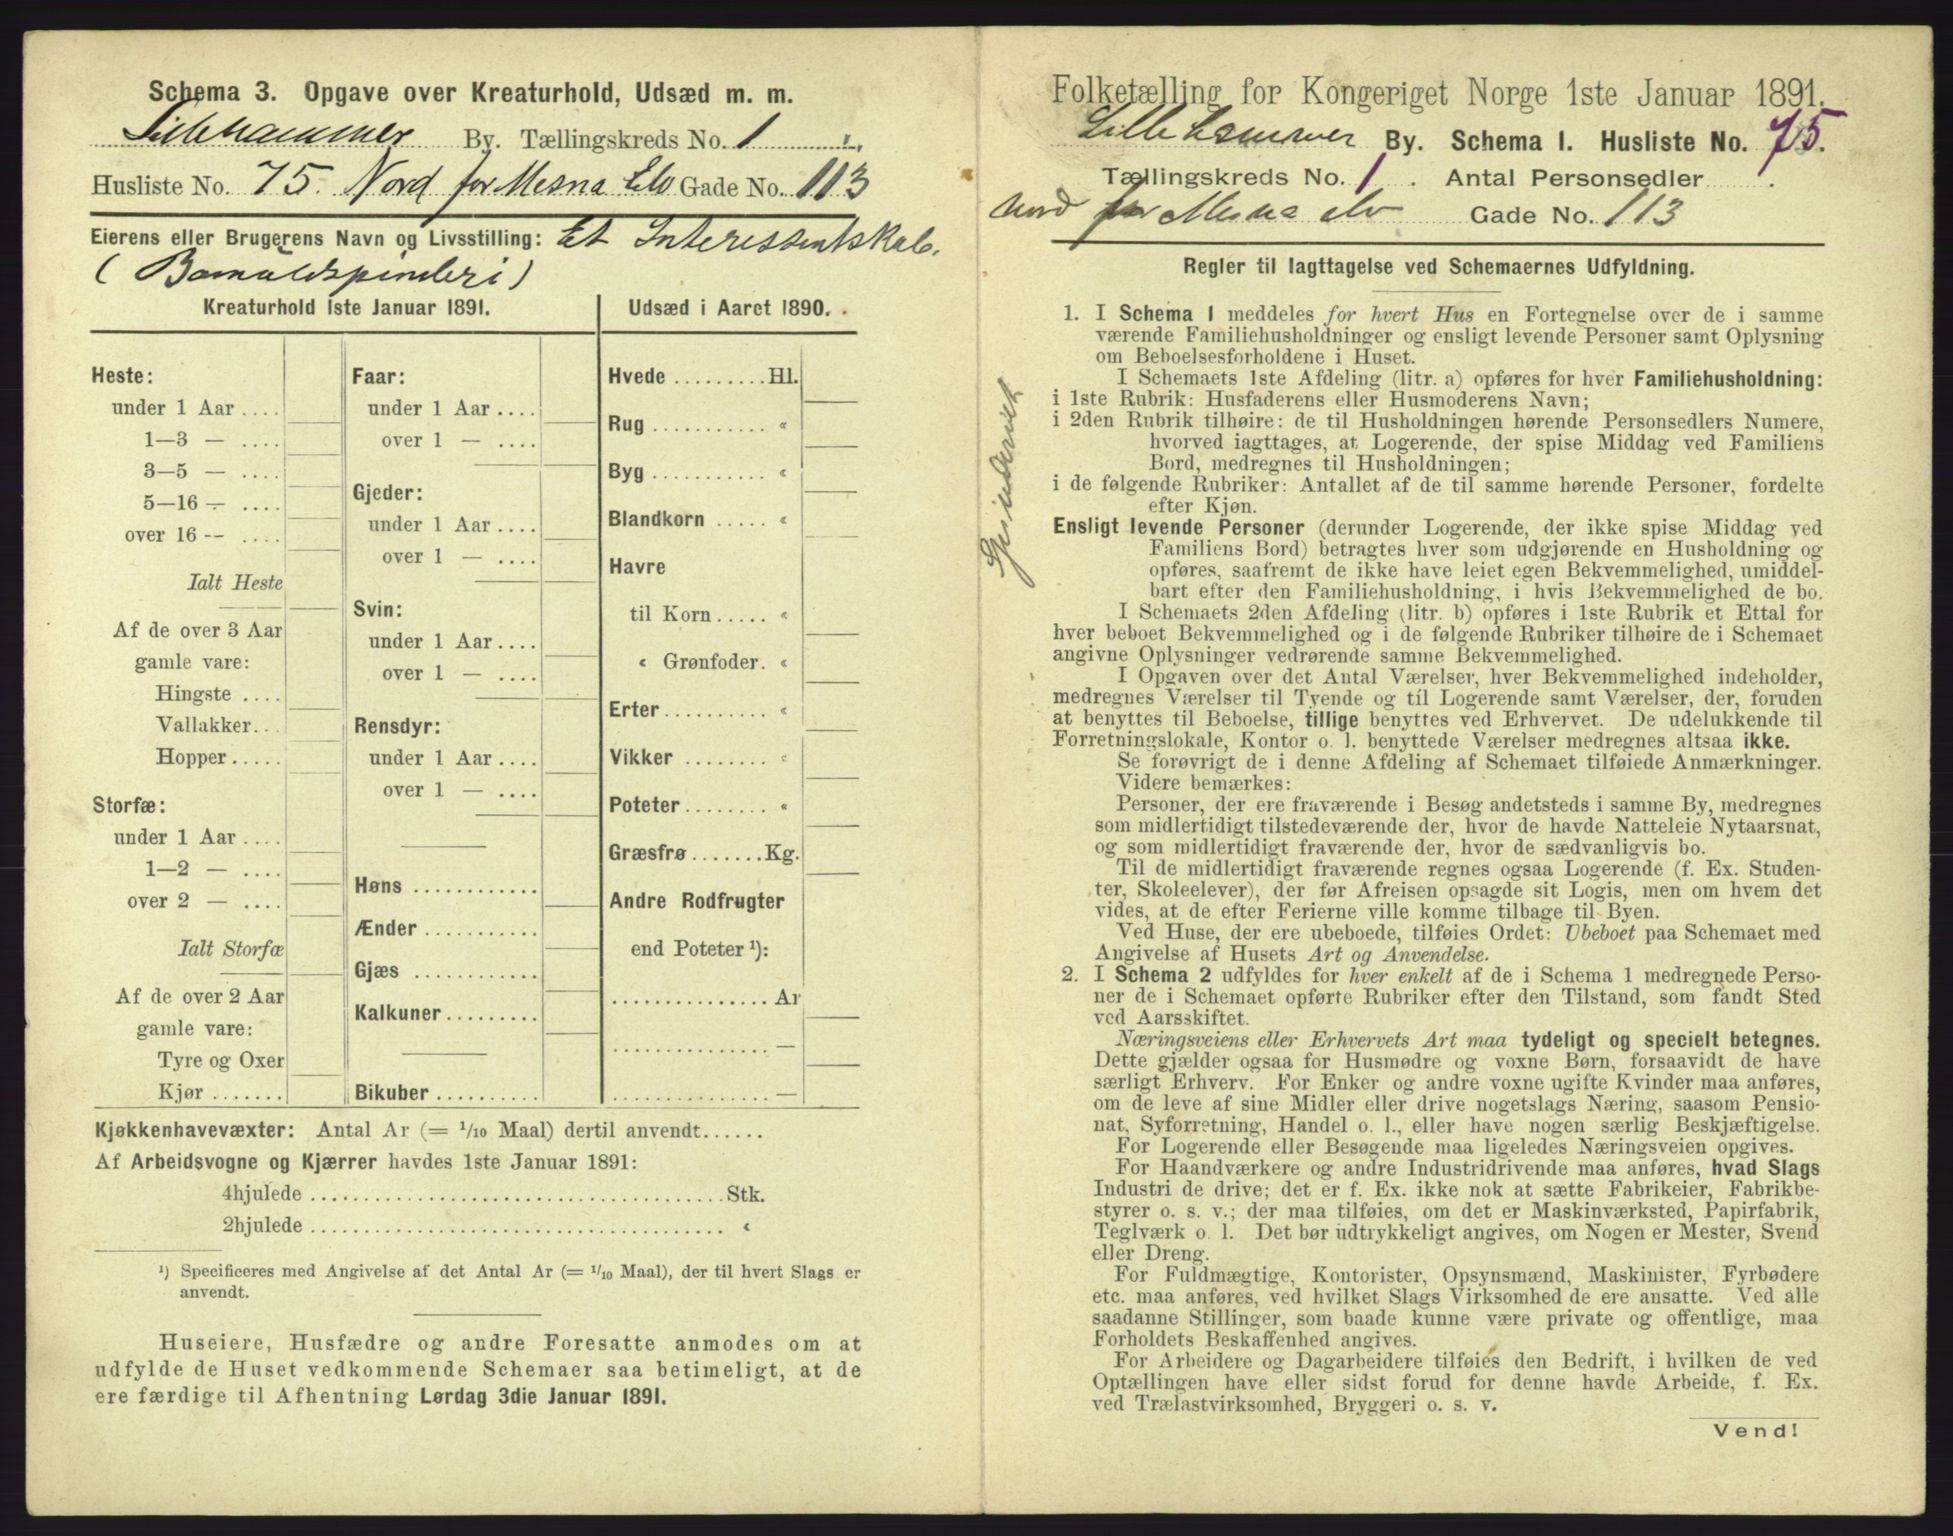 Schema 3. Opgave over Kreaturhold, Udsæd m. m.
Lillehammer By. Tællingskreds No. 1
Husliste No. 75. Nord for Mesna Elv Gade No. 113
Eierens eller Brugerens Navn og Livsstilling: Et Interessentskab.
(Bomuldspinderi)
Kreaturhold 1ste Januar 1891.
Heste:
under 1 Aar ....
1—3 — ....
3—5 — ....
5—16 — ....
over 16 -- ....
Ialt Heste
Af de over 3 Aar
gamle vare:
Hingste ....
Vallakker...
Hopper.....
Storfæ:
under 1 Aar ....
1—2 — ....
over 2 — ....
Ialt Storfæ
Af de over 2 Aar
gamle vare:
Tyre og Oxer
Kjør .......
Faar:
under 1 Aar ....
over 1 — ....
Gjeder:
under 1 Aar ....
over 1 — ....
Svin:
under 1 Aar ....
over 1 — ....
Rensdyr:
under 1 Aar ....
over 1 — ....
Høns ............
Ænder ...........
Gjæs ............
Kalkuner.........
Bikuber ..........
Udsæd i Aaret 1890.
Hvede .........Hl.
Rug ........... «
Byg ........... «
Blandkorn ..... «
Havre
til Korn..... «
« Grønfoder. «
Erter.......... «
Vikker ........ «
Poteter........ «
Græsfrø.......Kg.
Andre Rodfrugter
end Poteter ¹):
............... Ar
............... —
............... —
Kjøkkenhavevæxter: Antal Ar (= 1/10 Maal) dertil anvendt......
Af Arbeidsvogne og Kjærrer havdes 1ste Januar 1891:
4hjulede ........................................Stk.
2hjulede ........................................ «
¹) Specificeres med Angivelse af det Antal Ar (= 1/10 Maal), der til hvert Slags er
anvendt.
Huseiere, Husfædre og andre Foresatte anmodes om at
udfylde de Huset vedkommende Schemaer saa betimeligt, at de
ere færdige til Afhentning Lørdag 3die Januar 1891.
Folketælling for Kongeriget Norge 1ste Januar 1891.
Lillehammer By. Schema I. Husliste No. 75.
Tællingskreds No. 1 . Antal Personsedler .
Nord for Mesna elv Gade No. 113
Spinderiet
Regler til Iagttagelse ved Schemaernes Udfyldning.
1. I Schema I meddeles for hvert Hus en Fortegnelse over de i samme
værende Familiehusholdninger og ensligt levende Personer samt Oplysning
om Beboelsesforholdene i Huset.
I Schemaets 1ste Afdeling (litr. a) opføres for hver Familiehusholdning:
i 1ste Rubrik: Husfaderens eller Husmoderens Navn;
i 2den Rubrik tilhøire: de til Husholdningen hørende Personsedlers Numere,
hvorved iagttages, at Logerende, der spise Middag ved Familiens
Bord, medregnes til Husholdningen;
i de følgende Rubriker: Antallet af de til samme hørende Personer, fordelte
efter Kjøn.
Ensligt levende Personer (derunder Logerende, der ikke spise Middag ved
Familiens Bord) betragtes hver som udgjørende en Husholdning og
opføres, saafremt de ikke have leiet egen Bekvemmelighed, umiddel-
bart efter den Familiehusholdning, i hvis Bekvemmelighed de bo.
I Schemaets 2den Afdeling (litr. b) opføres i 1ste Rubrik et Ettal for
hver beboet Bekvemmelighed og i de følgende Rubriker tilhøire de i Schemaet
angivne Oplysninger vedrørende samme Bekvemmelighed.
I Opgaven over det Antal Værelser, hver Bekvemmelighed indeholder,
medregnes Værelser til Tyende og til Logerende samt Værelser, der, foruden
at benyttes til Beboelse, tillige benyttes ved Erhvervet. De udelukkende til
Forretningslokale, Kontor o. l. benyttede Værelser medregnes altsaa ikke.
Se forøvrigt de i denne Afdeling af Schemaet tilføiede Anmærkninger.
Videre bemærkes:
Personer, der ere fraværende i Besøg andetsteds i samme By, medregnes
som midlertidigt tilstedeværende der, hvor de havde Natteleie Nytaarsnat,
og som midlertidigt fraværende der, hvor de sædvanligvis bo.
Til de midlertidigt fraværende regnes ogsaa Logerende (f. Ex. Studen-
ter, Skoleelever), der før Afreisen opsagde sit Logis, men om hvem det
vides, at de efter Ferierne ville komme tilbage til Byen.
Ved Huse, der ere ubeboede, tilføies Ordet: Ubeboet paa Schemaet med
Angivelse af Husets Art og Anvendelse.
2. I Schema 2 udfyldes for hver enkelt af de i Schema 1 medregnede Perso-
ner de i Schemaet opførte Rubriker efter den Tilstand, som fandt Sted
ved Aarsskiftet.
Næringsveiens eller Erhvervets Art maa tydeligt og specielt betegnes.
Dette gjælder ogsaa for Husmødre og voxne Børn, forsaavidt de have
særligt Erhverv. For Enker og andre voxne ugifte Kvinder maa anføres,
om de leve af sine Midler eller drive nogetslags Næring, saasom Pensio-
nat, Syforretning, Handel o. l., eller have nogen særlig Beskjæftigelse.
For Logerende eller Besøgende maa ligeledes Næringsveien opgives.
For Haandværkere og andre Industridrivende maa anføres, hvad Slags
Industri de drive; det er f. Ex. ikke nok at sætte Fabrikeier, Fabrikbe-
styrer o. s. v.; der maa tilføies, om det er Maskinværksted, Papirfabrik,
Teglværk o. l. Det bør udtrykkeligt angives, om Nogen er Mester, Svend
eller Dreng.
For Fuldmægtige, Kontorister, Opsynsmænd, Maskinister, Fyrbødere
etc. maa anføres, ved hvilket Slags Virksomhed de ere ansatte. Ved alle
saadanne Stillinger, som baade kunne være private og offentlige, maa
Forholdets Beskaffenhed angives.
For Arbeidere og Dagarbeidere tilføies den Bedrift, i hvilken de ved
Optællingen have eller sidst forud for denne havde Arbeide, f. Ex.
ved Trælastvirksomhed, Bryggeri o. s. v.
Vend!